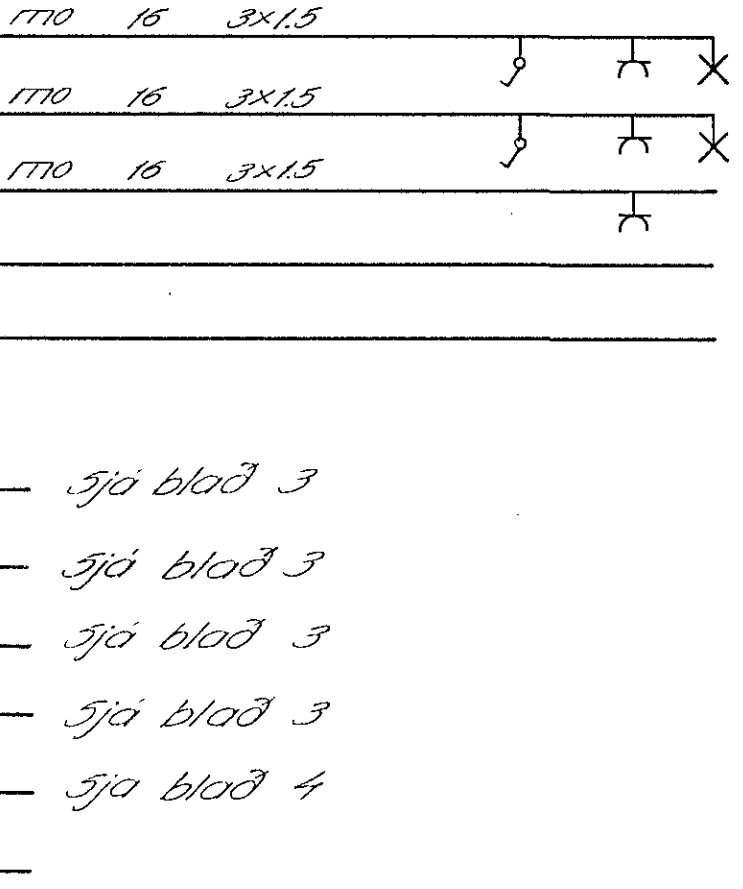 mo 16 3×1.5
mo 16 3×1.5
mo 16 3×1.5
Sjá blað 3
Sjá blað 3
Sjá blað 3
Sjá blað 3
Sja blað 4